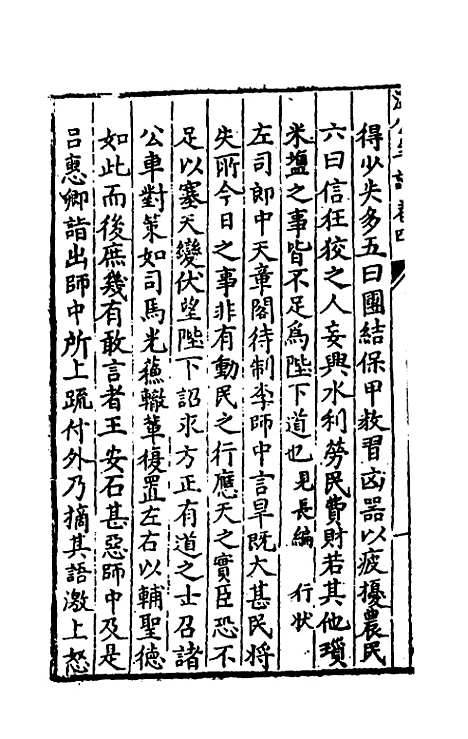 得少失多五曰團結保甲教習凶器以疲擾農民
六曰信狂狡之人妄興水利勞民費財若其他瑣
米鹽之事皆不足爲陛下道也 見長編 行状
左司郎中天章閣待制李師中言旱既大甚民將
失所今日之事非有動民之行應天之實臣恐不
足以塞天變伏望陛下詔求方正有道之士召諸
公車對策如司馬光蘓轍輩復置左右以輔聖德
如此而後庶幾有敢言者王安石甚惡師中及是
吕惠卿詣出師中所上疏付外乃摘其語激上怒